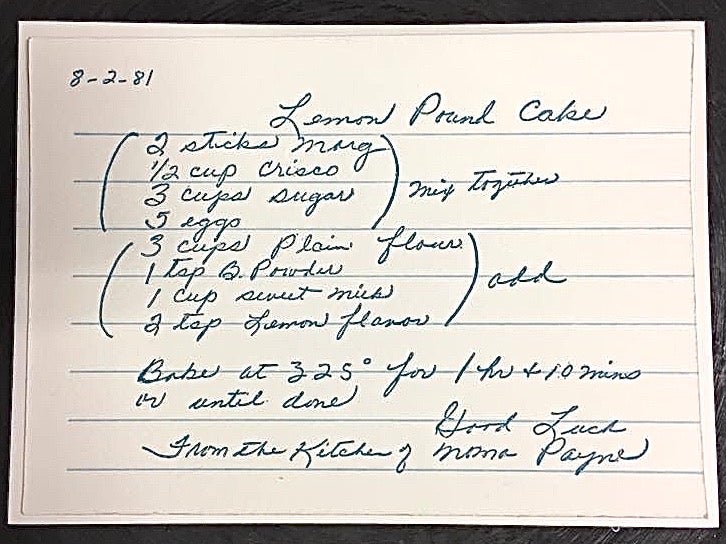 8-2-81
Lemon Pound Cake
2 sticks Marg
1/2 cup Crisco
3 cups sugar
5 eggs
mix together
3 cups Plain flour
1 tsp B. Powder
1 cup sweet milk
2 tsp Lemon flavor
add
Bake at 325° for 1 hr + 10 mins
or until done
Good Luck
From the Kitchen of Moma Payne